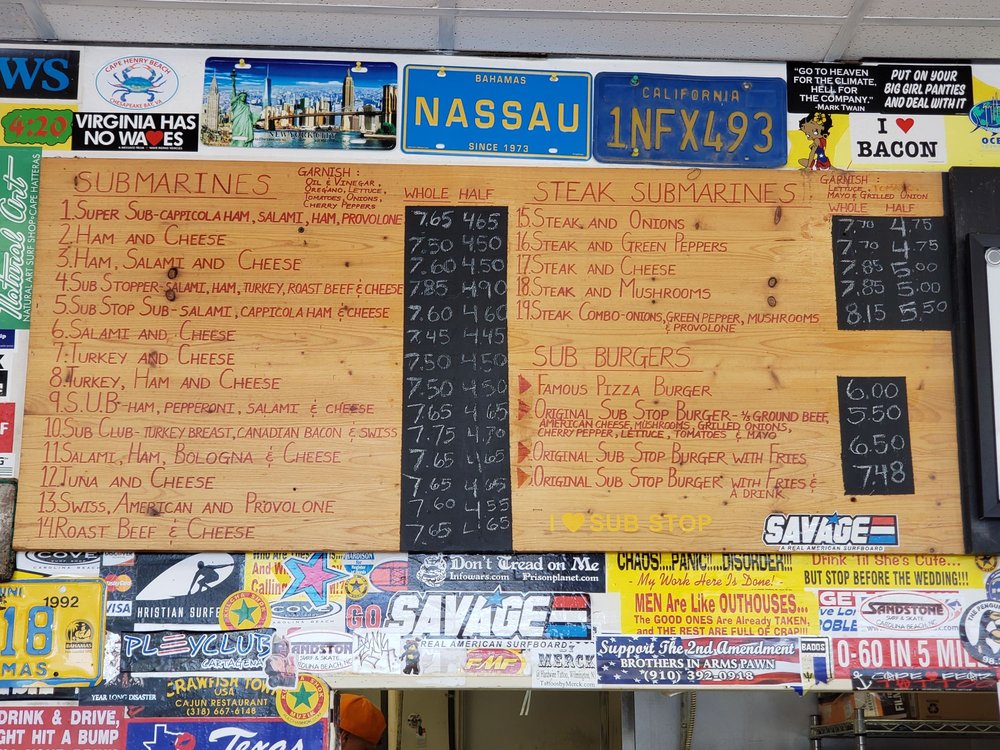 WS
CAPE HENRY BEACH
CHESAPEAKE BAY, VA
4:20
VIRGINIA HAS
NO WAVES
NEW YORK CITY
BAHAMAS
NASSAU
SINCE 1973
CALIFORNIA
1NFX493
"GO TO HEAVEN
FOR THE CLIMATE,
HELL FOR
THE COMPANY."
-MARK TWAIN
PUT ON YOUR
BIG GIRL PANTIES
AND DEAL WITH IT
I ♥
BACON
Natural Art
NATURAL ART SURF SHOP • CAPE HATTERAS
SUBMARINES
GARNISH:
OIL & VINEGAR,
OREGANO, LETTUCE,
TOMATOES, ONIONS,
CHERRY PEPPERS
WHOLE HALF
1. SUPER SUB-CAPPICOLA HAM, SALAMI, HAM, PROVOLONE 7.65 4.65
2. HAM AND CHEESE 7.50 4.50
3. HAM, SALAMI AND CHEESE 7.60 4.50
4. SUB STOPPER-SALAMI, HAM, TURKEY, ROAST BEEF & CHEESE 7.85 4.90
5. SUB STOP SUB-SALAMI, CAPPICOLA HAM & CHEESE 7.60 4.60
6. SALAMI AND CHEESE 7.45 4.45
7. TURKEY AND CHEESE 7.50 4.50
8. TURKEY, HAM AND CHEESE 7.50 4.50
9. S.U.B-HAM, PEPPERONI, SALAMI & CHEESE 7.65 4.65
10. SUB CLUB-TURKEY BREAST, CANADIAN BACON & SWISS 7.75 4.70
11. SALAMI, HAM, BOLOGNA & CHEESE 7.65 4.65
12. TUNA AND CHEESE 7.65 4.65
13. SWISS, AMERICAN AND PROVOLONE 7.60 4.55
14. ROAST BEEF & CHEESE 7.65 4.65
STEAK SUBMARINES
GARNISH:
LETTUCE,
MAYO & GRILLED ONION
WHOLE HALF
15. STEAK AND ONIONS 7.70 4.75
16. STEAK AND GREEN PEPPERS 7.70 4.75
17. STEAK AND CHEESE 7.85 5.00
18. STEAK AND MUSHROOMS 7.85 5.00
19. STEAK COMBO-ONIONS, GREEN PEPPER, MUSHROOMS & PROVOLONE 8.15 5.50
SUB BURGERS
FAMOUS PIZZA BURGER 6.00
ORIGINAL SUB STOP BURGER-⅓ GROUND BEEF, 5.50
AMERICAN CHEESE, MUSHROOMS, GRILLED ONIONS,
CHERRY PEPPER, LETTUCE, TOMATOES & MAYO
ORIGINAL SUB STOP BURGER WITH FRIES 6.50
ORIGINAL SUB STOP BURGER WITH FRIES & 7.48
A DRINK
I ♥ SUB STOP
SAVAGE
A REAL AMERICAN SURFBOARD
COVE
CAROLINA BEACH
Don't Tread on Me
Infowars.com Prisonplanet.com
CHAOS!...PANIC!...DISORDER!!
- My Work Here Is Done! -
Drink 'Til She's Cute...
BUT STOP BEFORE THE WEDDING!!!
1992
18
VISA
HRISTIAN SURFE
COVE
GO
SAVAGE
REAL AMERICAN SURFBOARD
MEN Are Like OUTHOUSES...
The GOOD ONES Are Already TAKEN,
and the REST ARE FULL OF CRAP!!
SANDSTONE
SURF & SKATE
PLAYCLUB
CARTAGENA
ANDSTON
SURF & SKATE
FMF
MERCK
TattoosbyMerck.com
Support The 2nd Amendment
BROTHERS IN ARMS PAWN
(910) 392-0918
0-60 IN 5 MIL
YEAR LONG DISASTER
CRAWFISH TOWN
USA
CAJUN RESTAURANT
(318) 667-6148
DRINK & DRIVE,
GHT HIT A BUMP
Texas